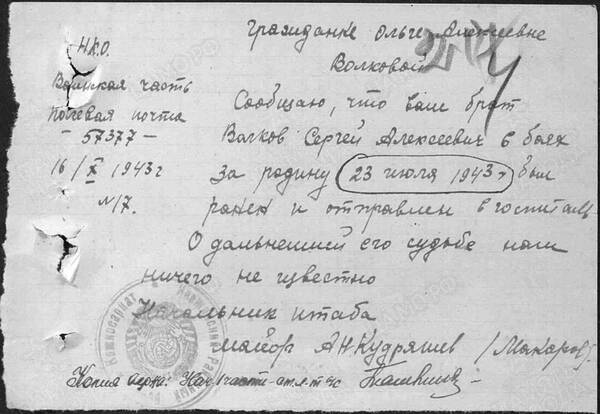 Гражданке Ольге Алексеевне
Волковой
Н.К.О.
Воинская часть
полевая почта
- 57377 -
16/X 1943 г
№17.
Сообщаю, что ваш брат
Волков Сергей Алексеевич в боях
за родину 23 июля 1943 г был
ранен и отправлен в госпиталь
О дальнейшей его судьбе нам
ничего не известно
Начальник штаба
майор Кудряшев /Макаров/.
Копия верна: Нач 1 части